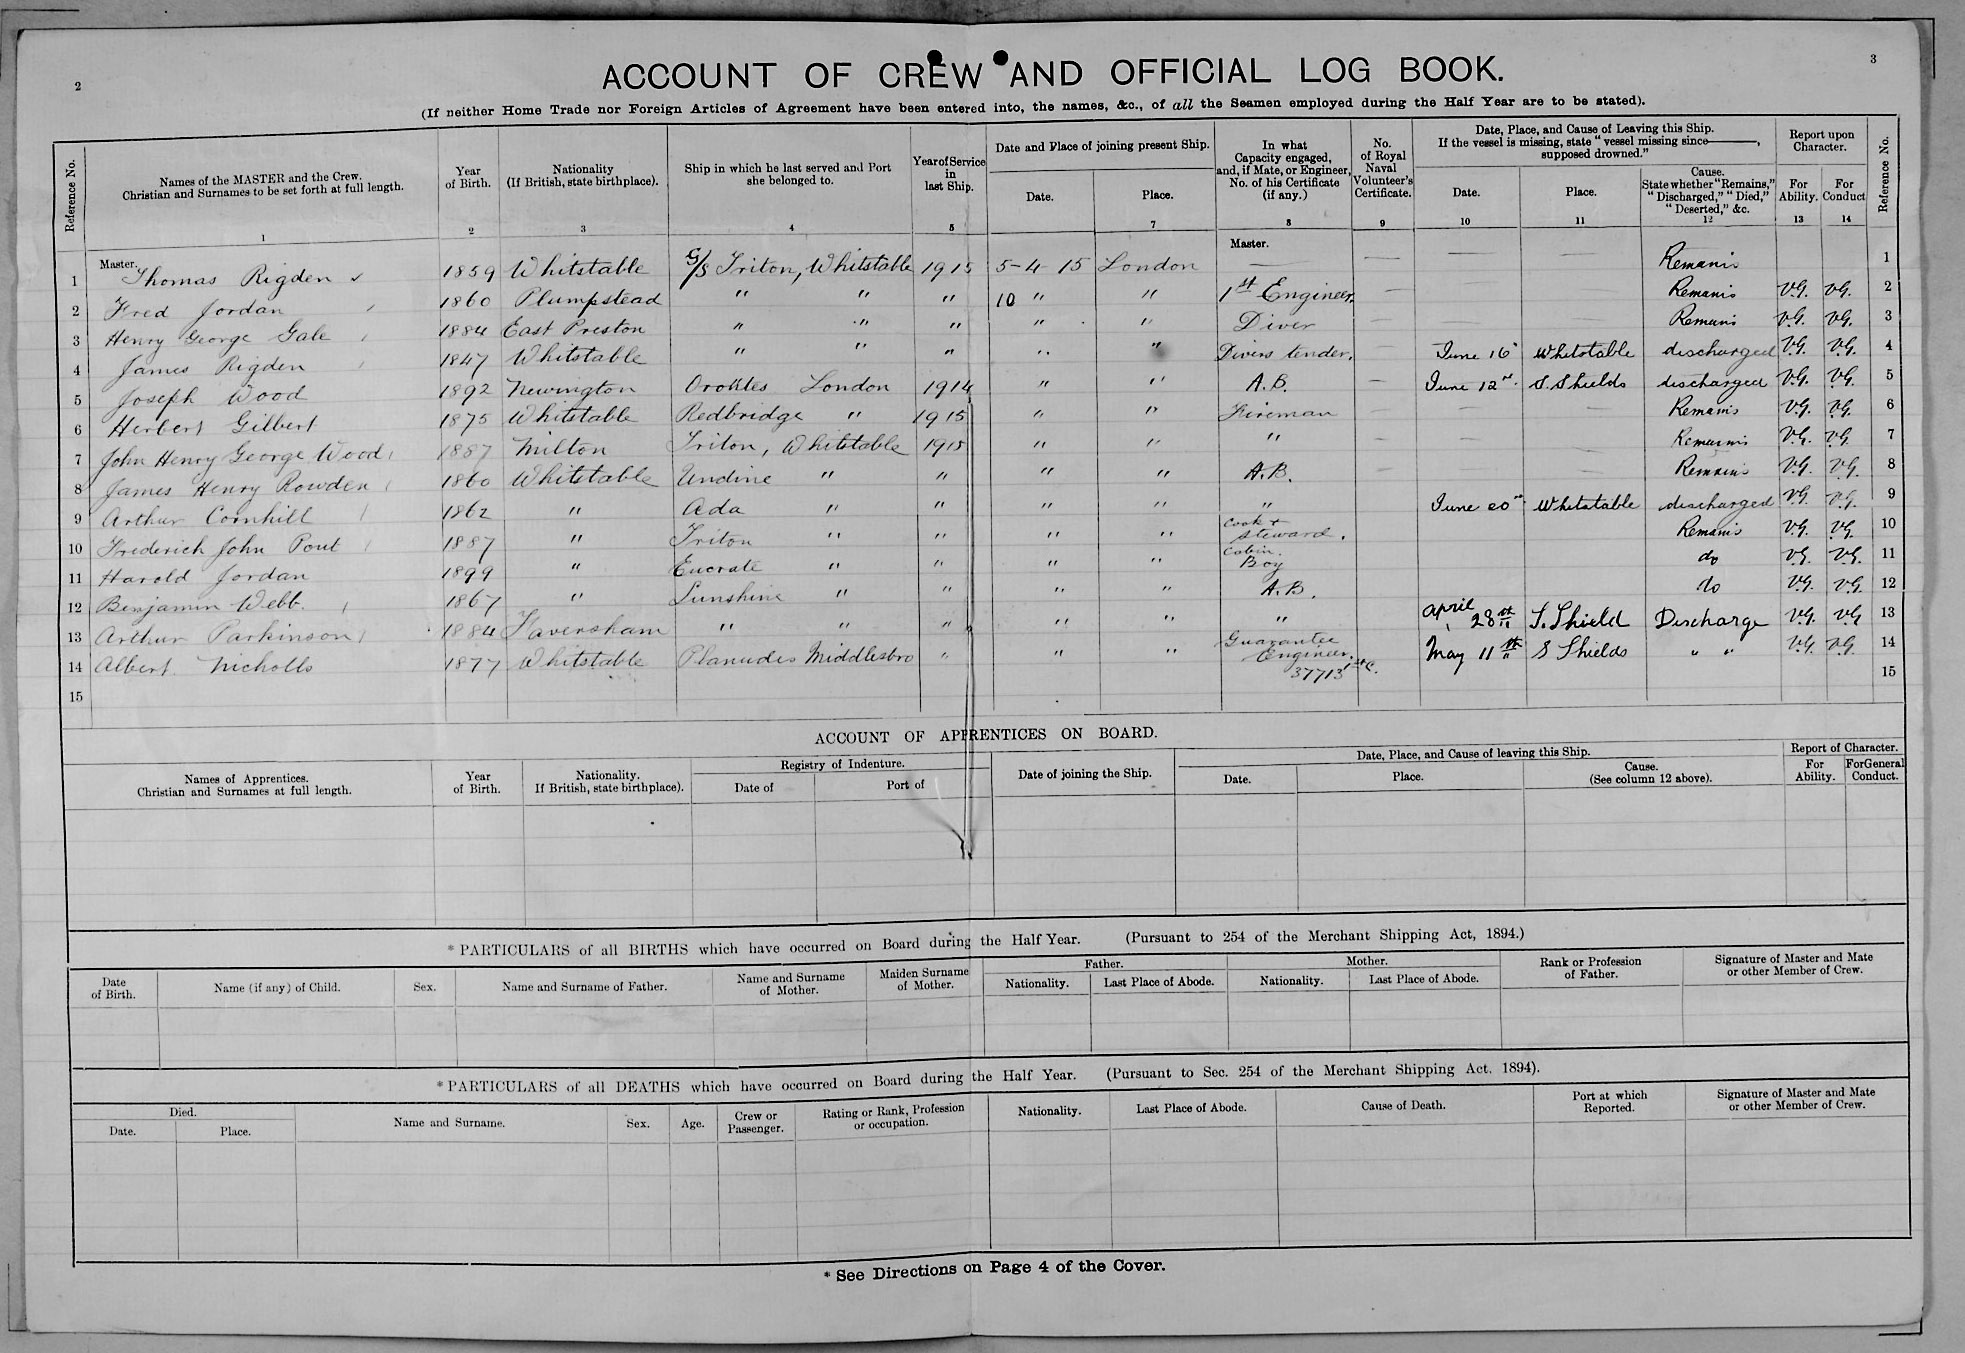 2
3
ACCOUNT OF CREW AND OFFICIAL LOG BOOK.
(If neither Home Trade nor Foreign Articles of Agreement have been entered into, the names, &c., of all the Seamen employed during the Half Year are to be stated).
Reference No. Names of the MASTER and the Crew. Christian and Surnames to be set forth at full length. Year of Birth. Nationality (If British, state birthplace). Ship in which he last served and Port she belonged to. Year of Service in last Ship. Date and Place of joining present Ship. Date. Place. In what Capacity engaged, and, if Mate, or Engineer, No. of his Certificate (if any.) No. of Royal Naval Volunteer's Certificate. Date, Place, and Cause of Leaving this Ship. If the vessel is missing, state "vessel missing since ———, supposed drowned." Date. Place. Cause. State whether "Remains," "Discharged," "Died," "Deserted," &c. Report upon Character. For Ability. For Conduct Reference No.
1 2 3 4 5 7 8 9 10 11 12 13 14
1 Master. Thomas Rigden 1859 Whitstable S/S Triton, Whitstable 1915 5-4 15 London Master. — — — — Remains 1
2 Fred Jordan 1860 Plumpstead " " " 10 " " 1st Engineer. — — — Remains V.G. V.G. 2
3 Henry George Gale 1884 East Preston " " " " " Diver — — — Remains V.G. V.G. 3
4 James Rigden 1847 Whitstable " " " " " Divers tender. — June 16 Whitstable discharged V.G. V.G. 4
5 Joseph Wood 1892 Newington London 1914 " " A.B. — June 12 S. Shields discharged V.G. V.G. 5
6 Herbert Gilbert 1875 Whitstable Redbridge " 1915 " " Fireman — — — Remains V.G. V.G. 6
7 John Henry George Wood 1887 Milton Triton, Whitstable 1915 " " " — — — Remains V.G. V.G. 7
8 James Henry Rowden 1860 Whitstable Undine " " " " A.B. — — — Remains V.G. V.G. 8
9 Arthur Cornhill 1862 " Ada " " " " " June 20 Whitstable discharged V.G. V.G. 9
10 Frederick John Pout 1887 " Triton " " " " Cook + Steward. Remains V.G. V.G. 10
11 Harold Jordan 1899 " Eucrate " " " " Cabin. Boy do V.G. V.G. 11
12 Benjamin Webb. 1867 " Sunshine " " " " A.B. do V.G. V.G. 12
13 Arthur Parkinson 1884 Faversham " " " " " " April 28th S. Shield Discharge V.G. V.G 13
14 Albert Nicholls 1877 Whitstable Planudes Middlesbro " " " Guarantee Engineer. 1st C. 37713 May 11th S Shields " " V.G. V.G. 14
15 15
ACCOUNT OF APPRENTICES ON BOARD.
Names of Apprentices. Christian and Surnames at full length. Year of Birth. Nationality. If British, state birthplace). Registry of Indenture. Date of Port of Date of joining the Ship. Date, Place, and Cause of leaving this Ship. Date. Place. Cause. (See column 12 above). Report of Character. For Ability. For General Conduct.
* PARTICULARS of all BIRTHS which have occurred on Board during the Half Year. (Pursuant to 254 of the Merchant Shipping Act, 1894.)
Date of Birth. Name (if any) of Child. Sex. Name and Surname of Father. Name and Surname of Mother. Maiden Surname of Mother. Father. Nationality. Last Place of Abode. Mother. Nationality. Last Place of Abode. Rank or Profession of Father. Signature of Master and Mate or other Member of Crew.
* PARTICULARS of all DEATHS which have occurred on Board during the Half Year. (Pursuant to Sec. 254 of the Merchant Shipping Act. 1894).
Died. Date. Place. Name and Surname. Sex. Age. Crew or Passenger. Rating or Rank, Profession or occupation. Nationality. Last Place of Abode. Cause of Death. Port at which Reported. Signature of Master and Mate or other Member of Crew.
* See Directions on Page 4 of the Cover.